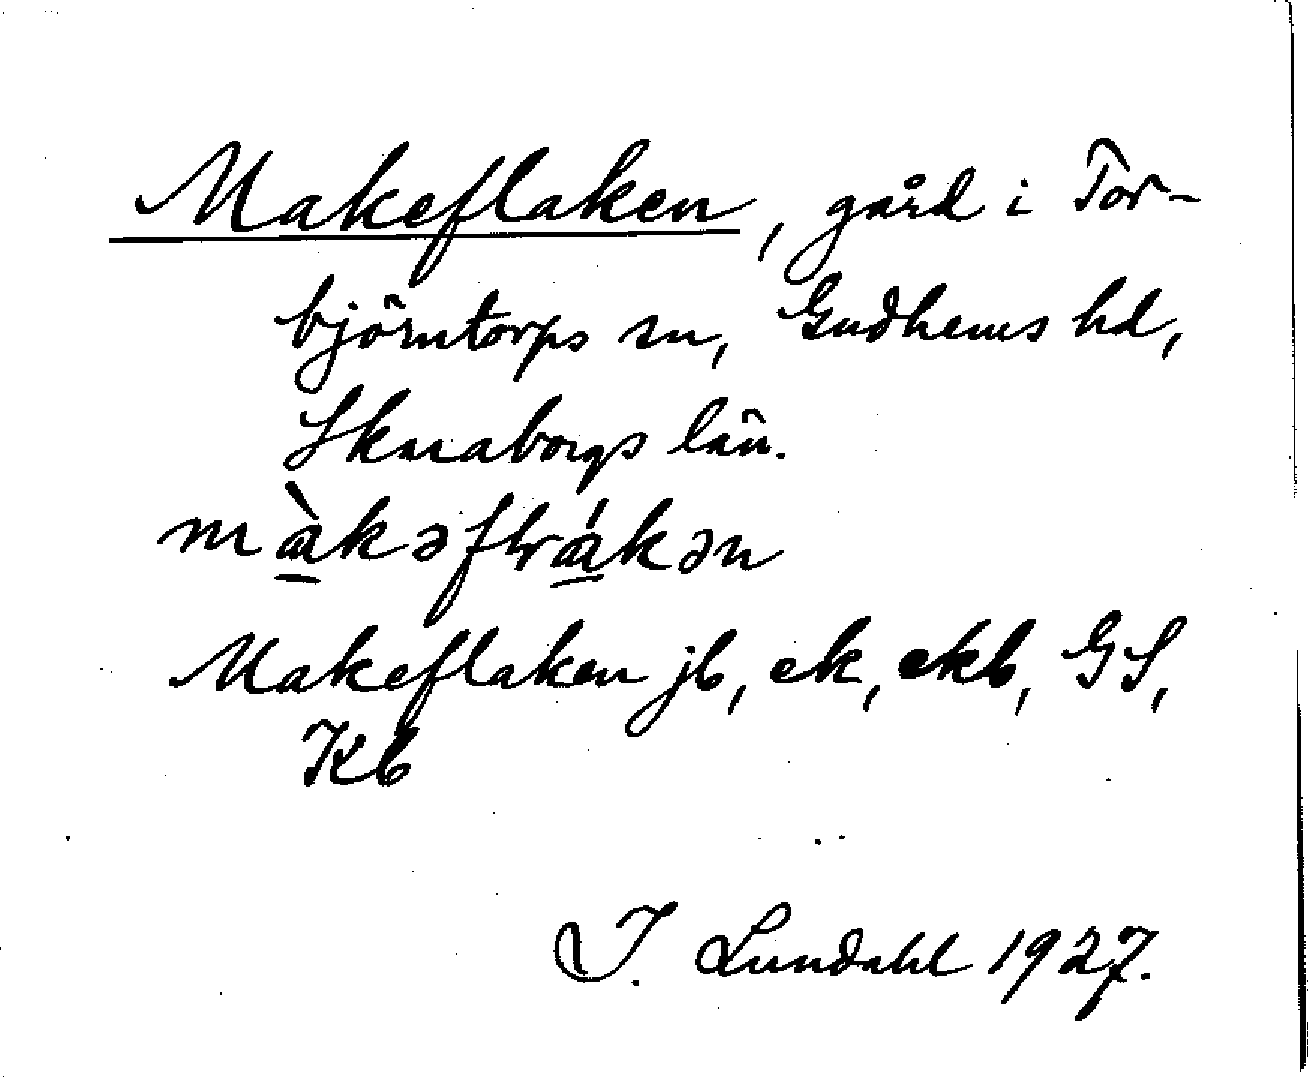 Makeflaken, gård i Tor-
björntorps sn, Gudhems hd,
Skaraborgs län.
màkəflrákən
Makeflaken jb, ek, ekb, GS,
Kb
I. Lundahl 1927.